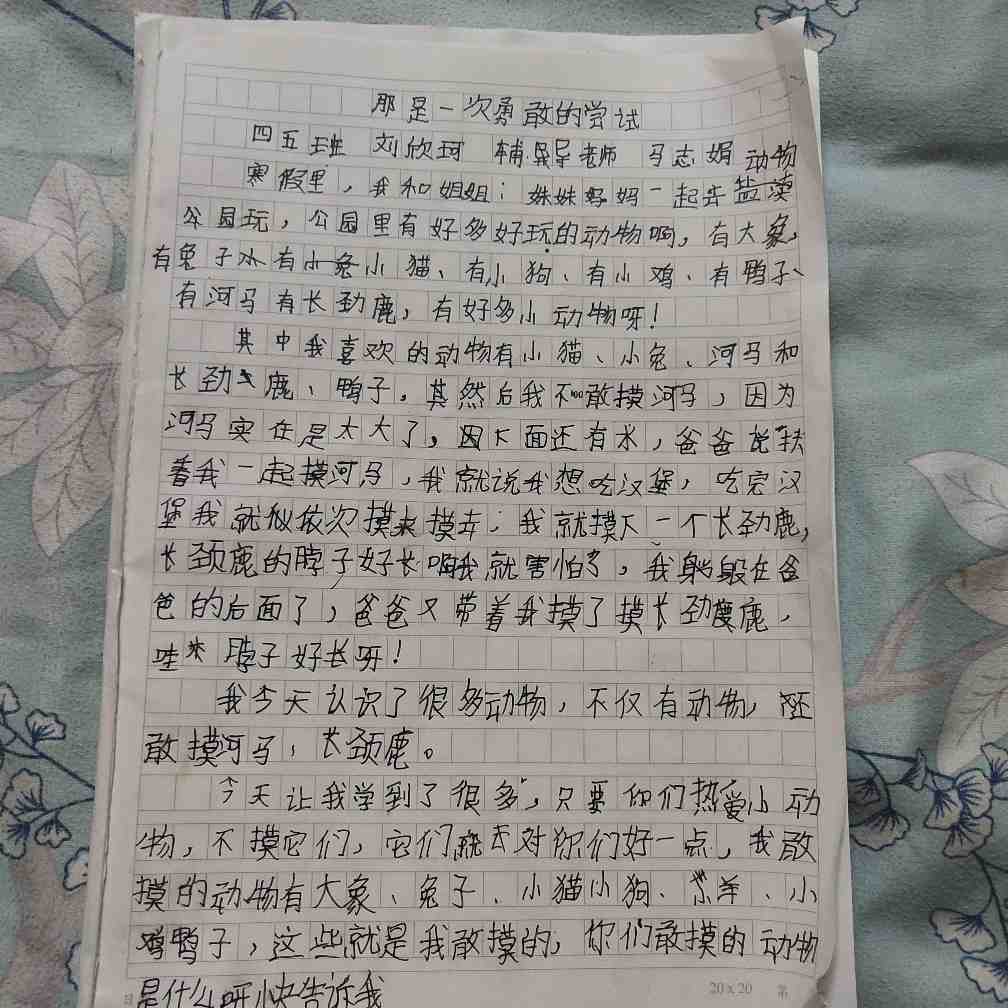 那是一次勇敢的尝试
四五班 刘欣珂 辅导老师 马志娟 动物
寒假里，我和姐姐；妹妹妈妈一起去盐漠
公园玩，公园里有好多好玩的动物啊，有大象，
有兔子 有小兔小猫、有小狗、有小鸡、有鸭子、
有河马有长劲鹿，有好多小动物呀！
其中我喜欢的动物有小猫、小兔、河马和
长劲鹿、鸭子。其然后我不敢摸河马，因为
河马实在是太大了，因下面还有水，爸爸说扶
着我一起摸河马，我就说我想吃汉堡，吃完汉
堡我就 依次摸 摸去；我就摸下一个长劲鹿，
长颈鹿的脖子好长 我就害怕了，我躲 在爸
爸的后面了，爸爸又带着我摸了摸长劲鹿，
哇 脖子好长呀！
我今天认识了很多动物，不仅有动物，还
敢摸河马，长颈鹿。
今天让我学到了很多，只要你们热爱小动
物，不摸它们，它们就去对你们好一点，我敢
摸的动物有大象、兔子、小猫小狗、羊、小
鸡鸭子，这些就是我敢摸的，你们敢摸的动物
是什么呀小快告诉我
20x20 第